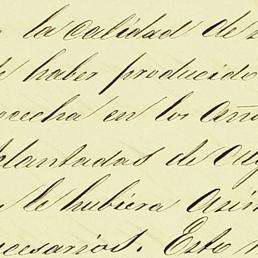 la calidad de
haber producido
cosecha en los año
plantadas de alg
le hubiera asi
necesarios. Esto